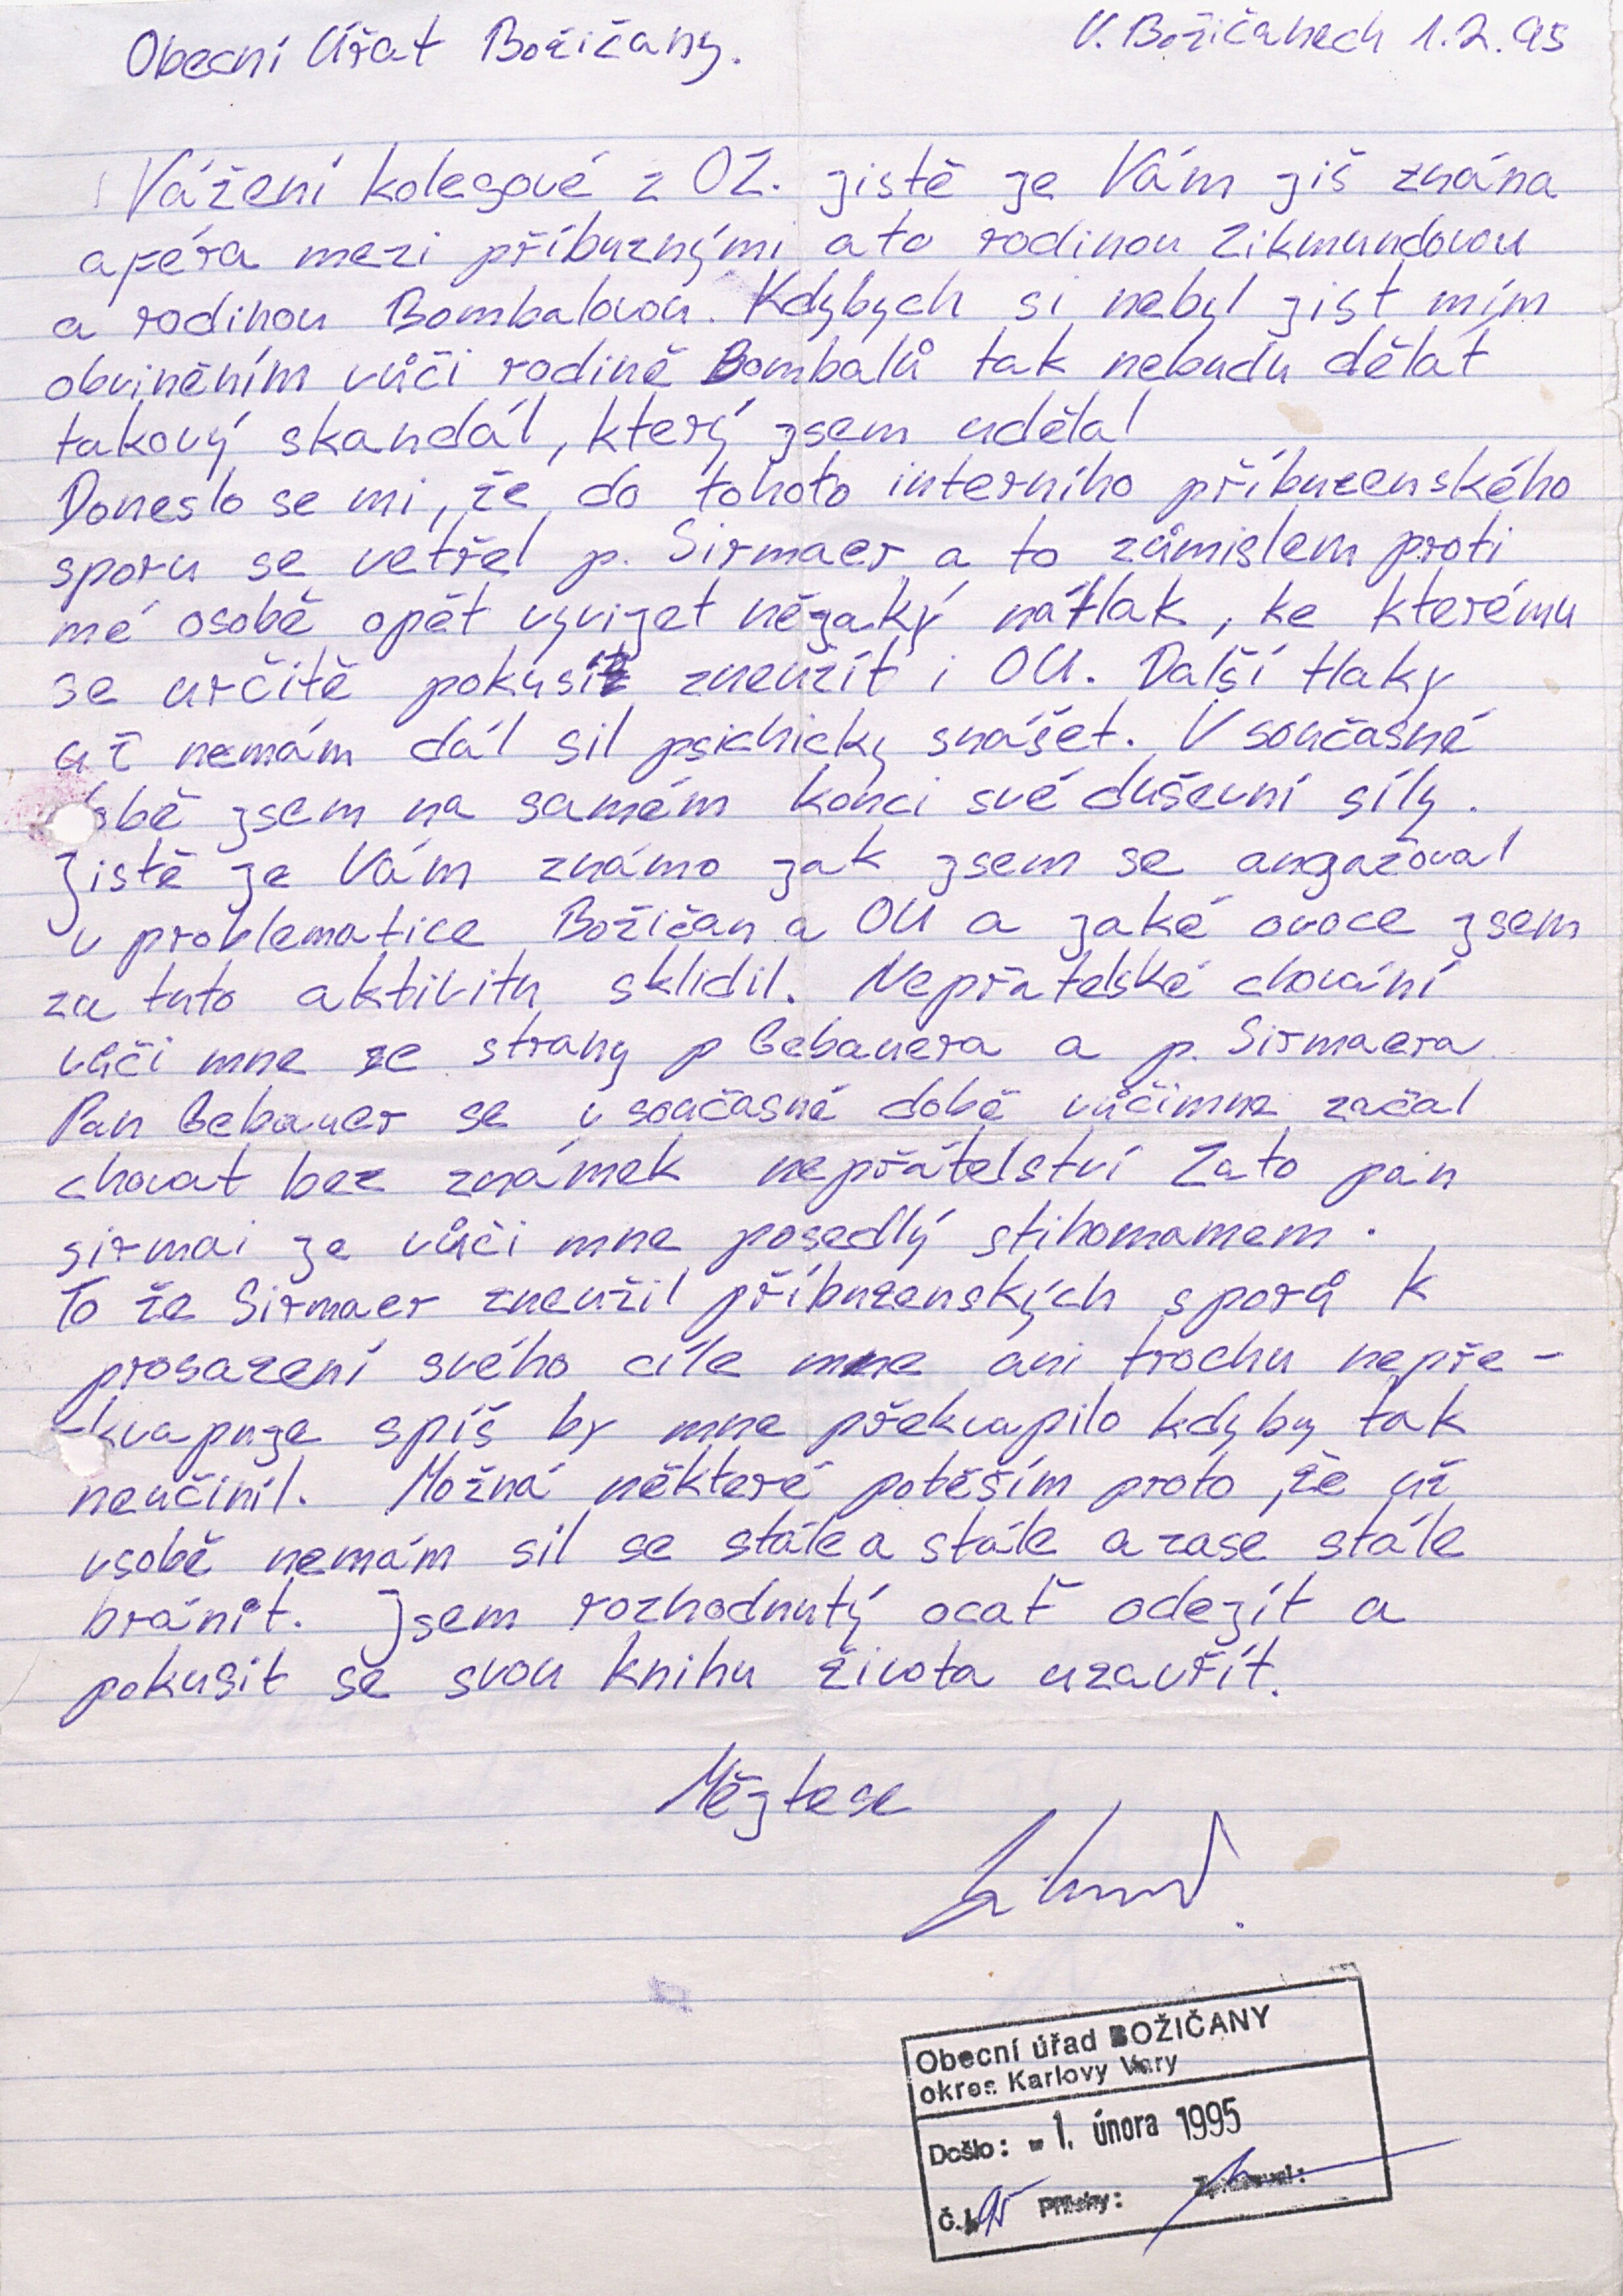 Obecní Úřat Božičany.
V. Božičanech 1.2.95
Vážení kolegové z OZ. jistě je Vám jiš znána
aféra mezi příbuznými ato rodinou Zikmundovou
a rodinou Bombalovou. Kdybych si nebyl jist mím
obviněním vůči rodině Bombalů tak nebudu dělat
takový skandál, který jsem udělal
Doneslo se mi, že do tohoto interního příbuzenského
sporu se vetřel p. Sirmaer a to zůmislem proti
mé osobě opět vyvijet nějaký nátlak, ke kterému
se určitě pokusit zneužít i OU. Další tlaky
už nemám dál sil psichicky snášet. V současné
době jsem na samém konci své duševní síly.
Jistě je Vám známo jak jsem se angažoval
v problematice Božičan a OU a jaké ovoce jsem
za tuto aktivitu sklidil. Nepřatelské chování
vůči mne ze strany p Gebauera a p. Sirmaera
Pan Gebauer se v současné době vůčimne začal
chovat bez známek nepřátelství Zato pan
sirmai je vůči mne posedlý stihomamem.
To že Sirmaer zneužil příbuzenských sporů k
prosazení svého cíle mne ani trochu nepře-
-kvapuje spíš by mne překvapilo kdyby tak
neučinil. Možná některé potěším proto, že už
vsobě nemám sil se stále a stále a zase stále
bránit. Jsem rozhodnutý ocať odejít a
pokusit se svou knihu života uzavřít.
Mějtese
Obecní úřad BOŽIČANY
okres Karlovy Vary
Došlo: - 1. února 1995
Č.j. 95 Přílohy: Zpracoval: